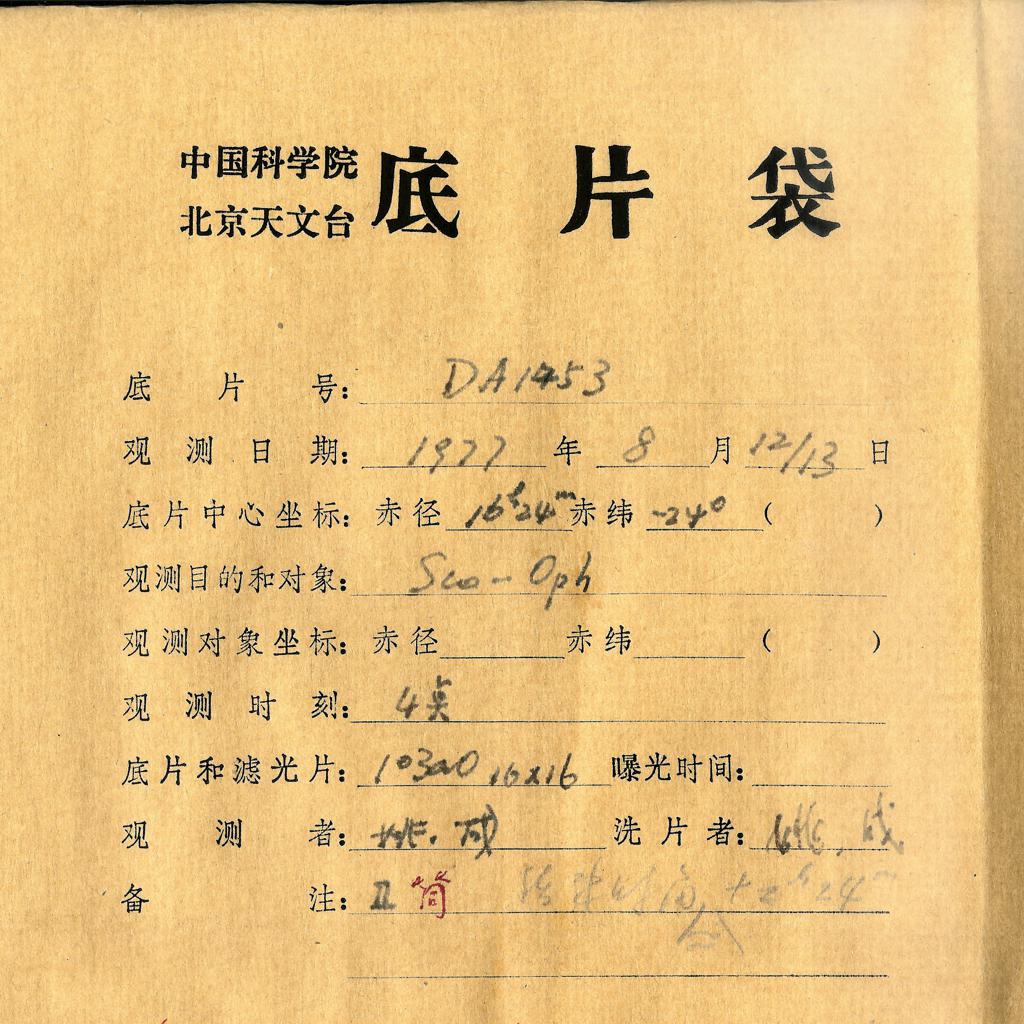 中国科学院
北京天文台
底片袋
底片号: DA1453
观测日期: 1977 年 8 月 12/13 日
底片中心坐标: 赤径 16h24m 赤纬 -24° ( )
观测目的和对象: Sco-Oph
观测对象坐标: 赤径 赤纬 ( )
观测时刻: 4点
底片和滤光片: 103aO 16x16 曝光时间:
观测者:
洗片者:
备注: 简 24m